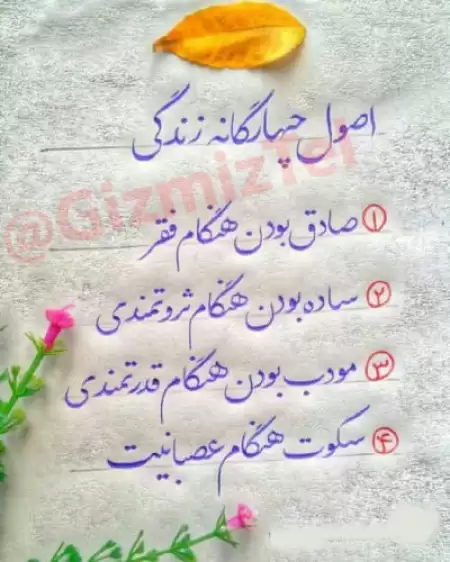 اصول چهارگانه زندگی
@GizmizTel
۱ صادق بودن هنگام فقر
۲ ساده بودن هنگام ثروتمندی
۳ مودب بودن هنگام قدرتمندی
۴ سکوت هنگام عصبانیت